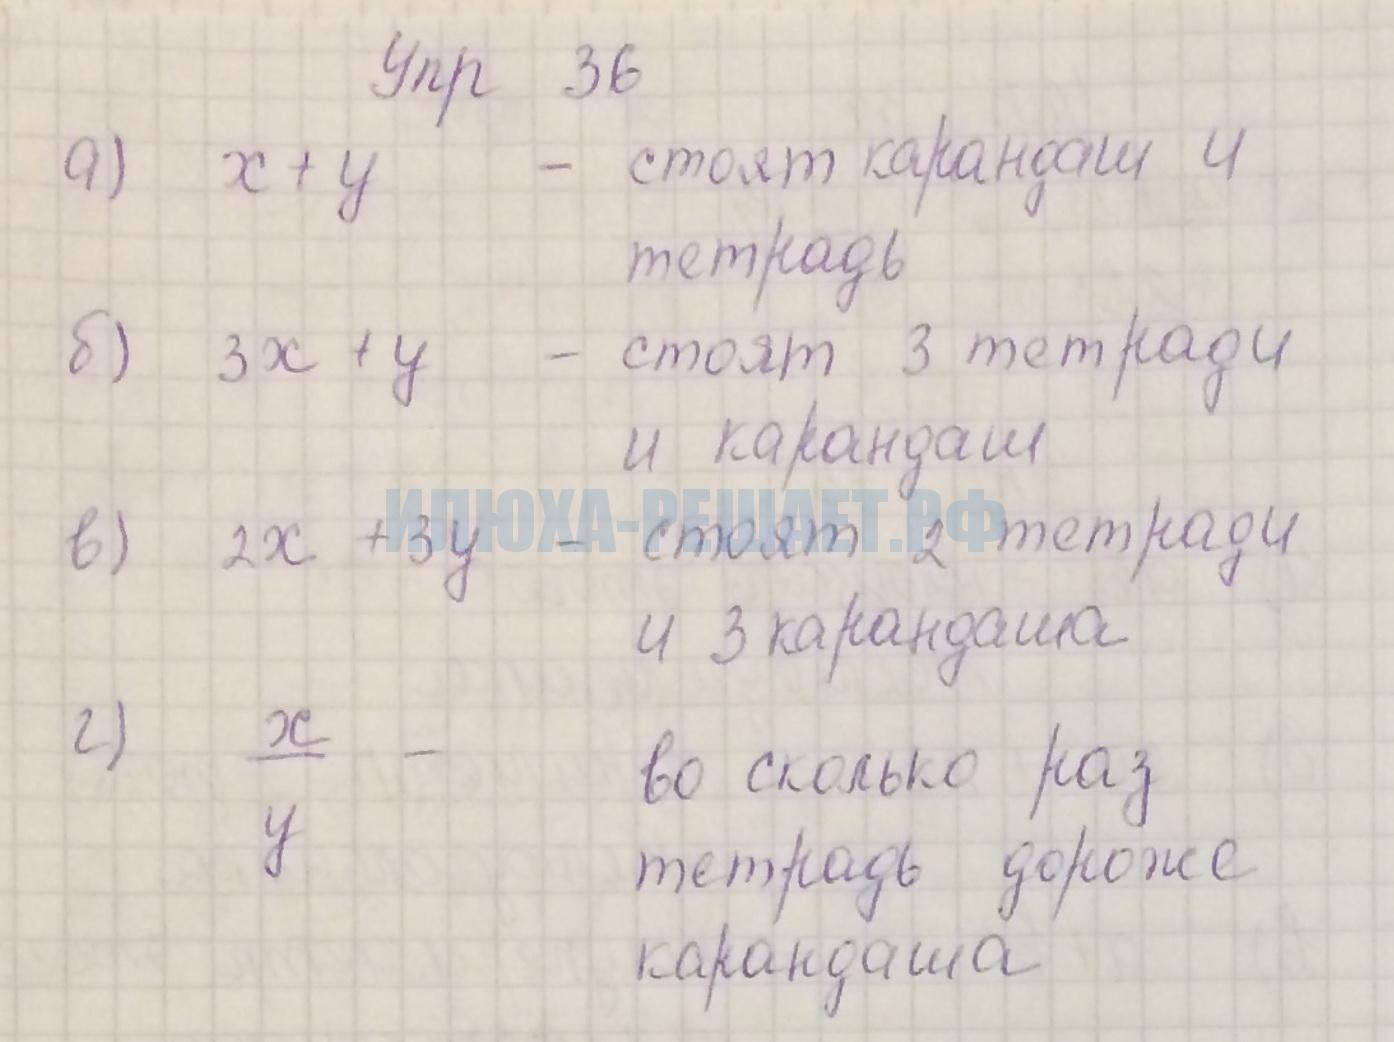 Упр 36
а) x + y - стоят карандаш и
тетрадь
б) 3x + y - стоят 3 тетради
и карандаш
ИЛЮХА-РЕШАЕТ.РФ
в) 2x + 3y - стоят 2 тетради
и 3 карандаша
г) x/y - во сколько раз
тетрадь дороже
карандаша